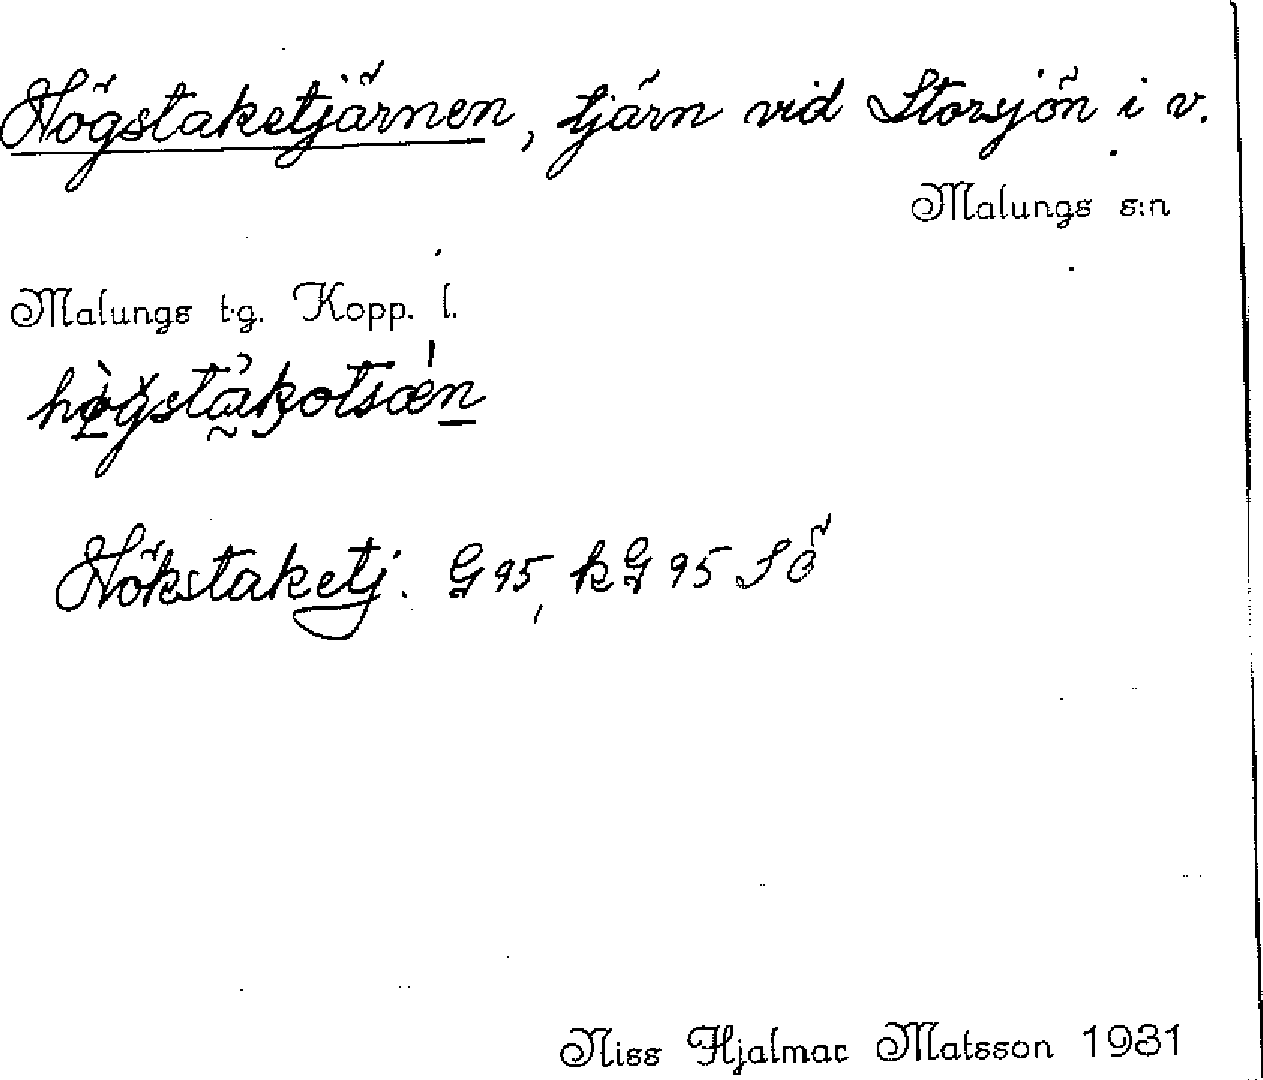 Högstaketjärnen, tjärn vid Storsjön i v.
Malungs s:n
Malungs t.g. Kopp. l.
Hökstaketj. G 95, kG 95 Sö
Niss Hjalmar Matsson 1931